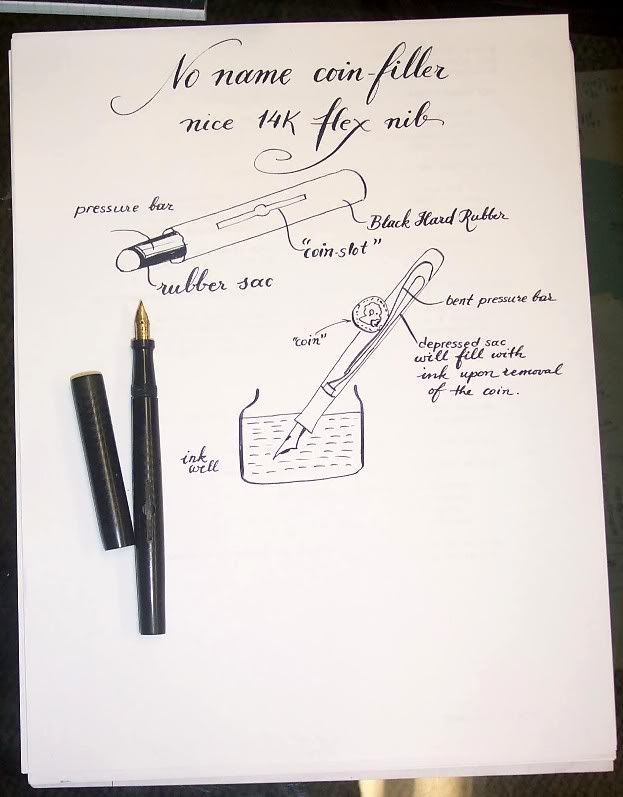 No name coin-filler
nice 14K flex nib
pressure bar
Black Hard Rubber
"coin-slot"
rubber sac
bent pressure bar
"coin"
depressed sac
will fill with
ink upon removal
of the coin.
ink
well